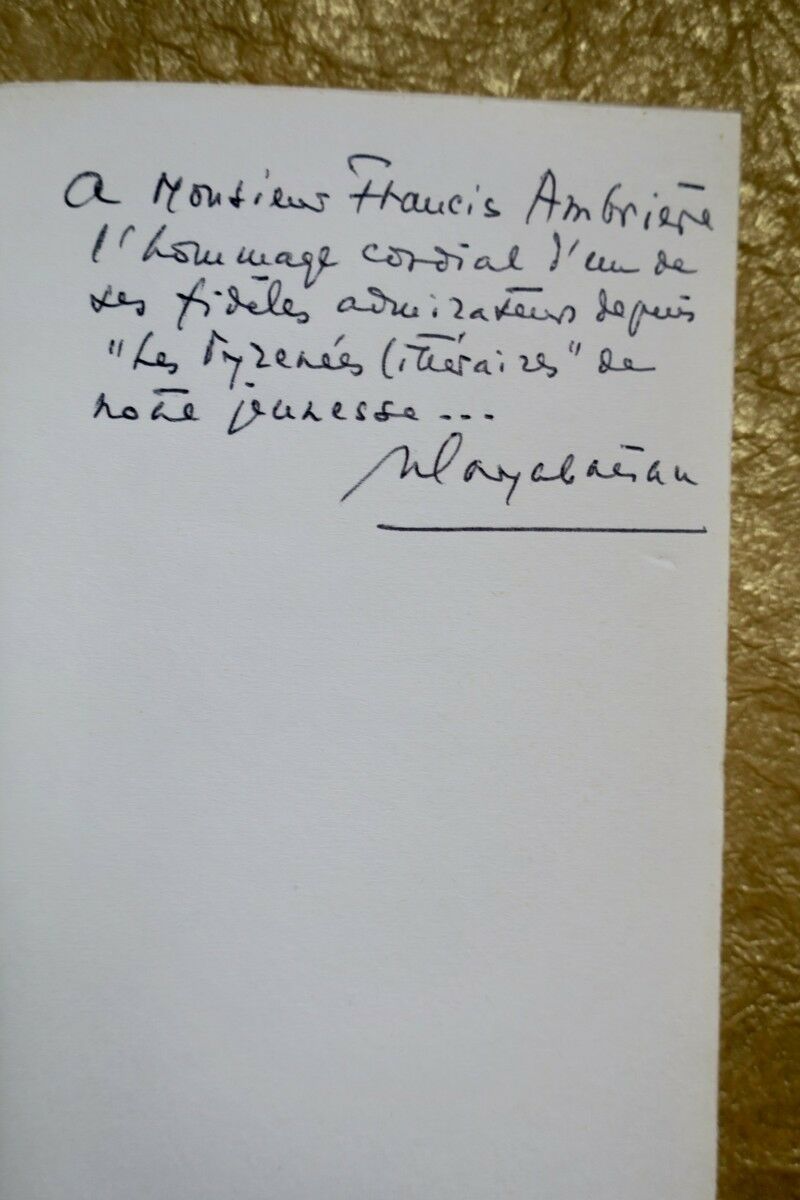 A Monsieur Francis Ambrière
l'hommage cordial d'un de
ses fidèles admirateurs depuis
"Les Pyrenées littéraires" de
notre jeunesse ...